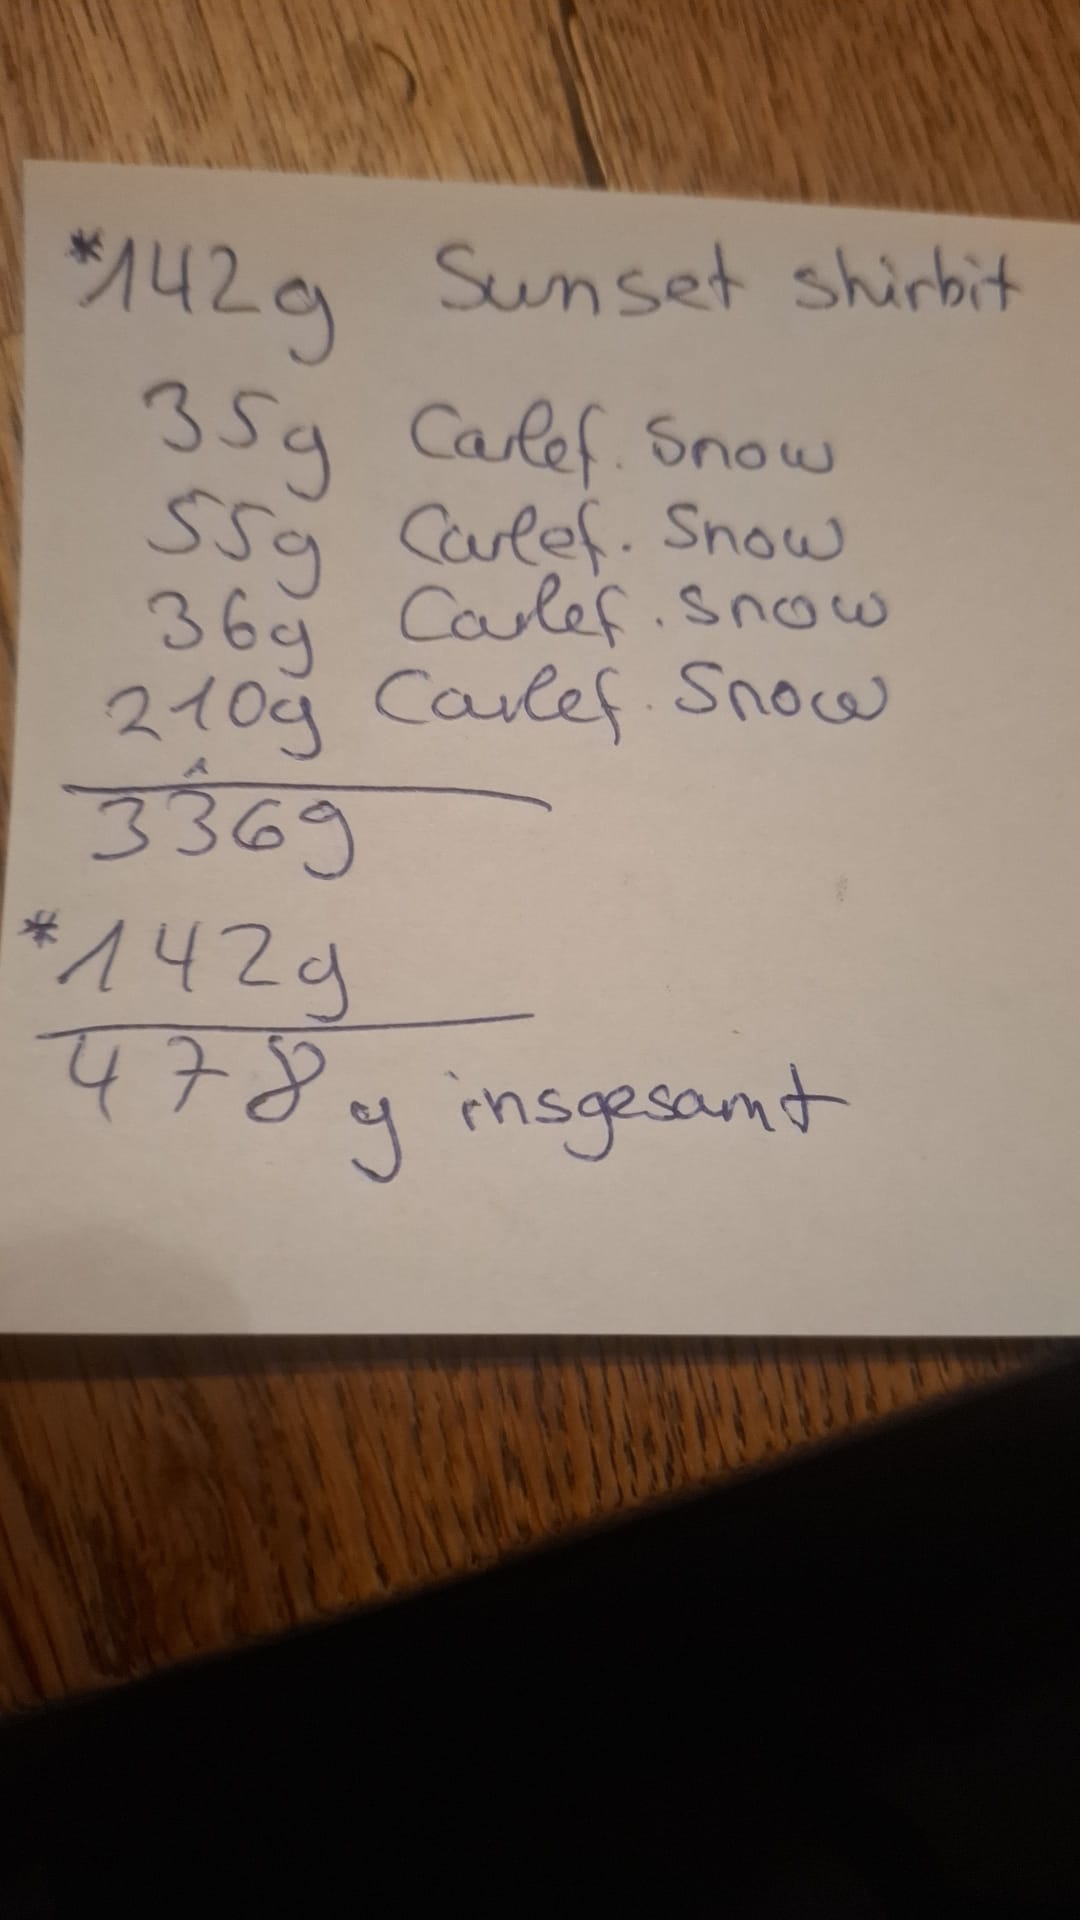 *142g Sunset shirbit
35g Calef. Snow
55g Calef. Snow
36g Calef. Snow
210g Calef. Snow
336g
*142g
478g insgesamt